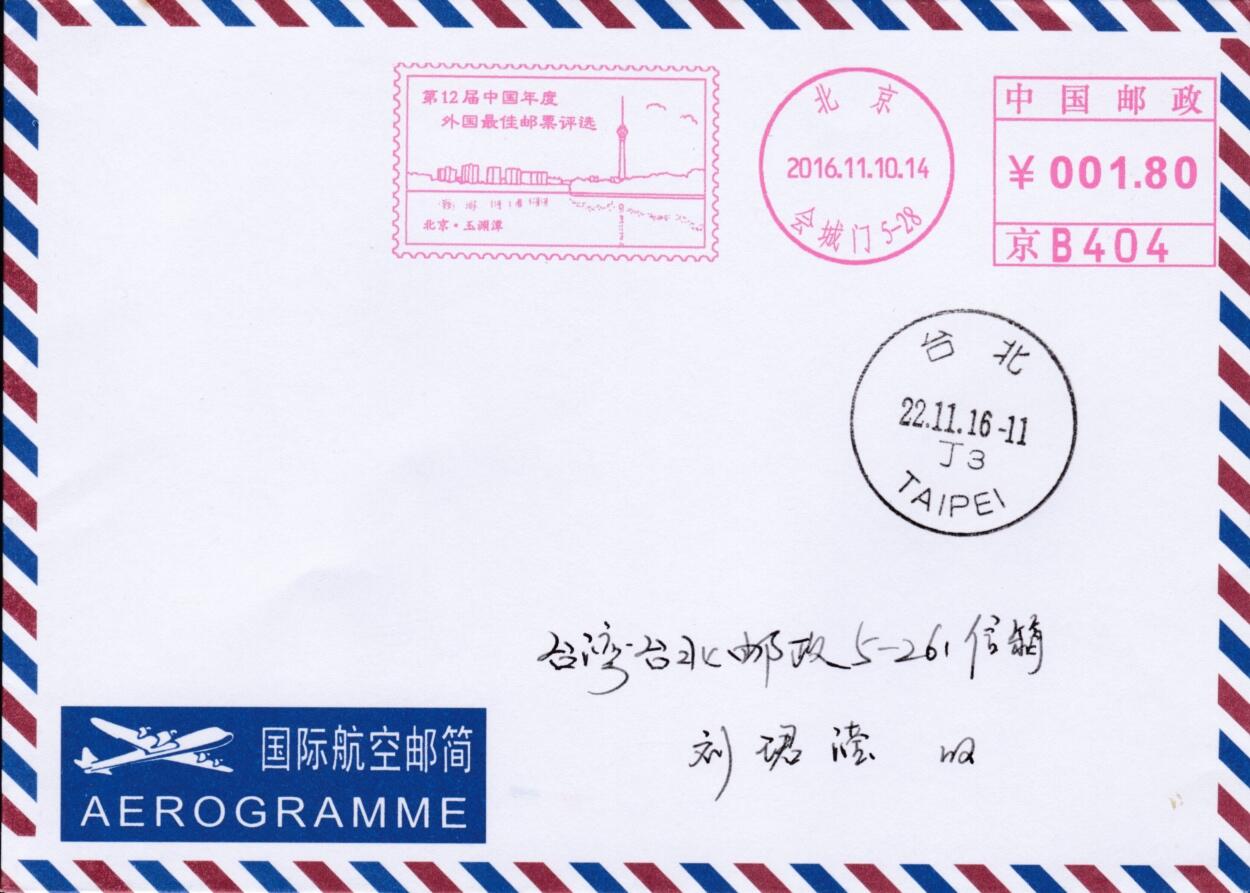 第12届中国年度
外国最佳邮票评选
北京·玉渊潭
北京
2016.11.10.14
会城门 5-28
中国邮政
¥ 001.80
京B404
台北
22.11.16-11
J3
TAIPEI
台湾台北邮政5-261信箱
刘珺 收
国际航空邮简
AEROGRAMME